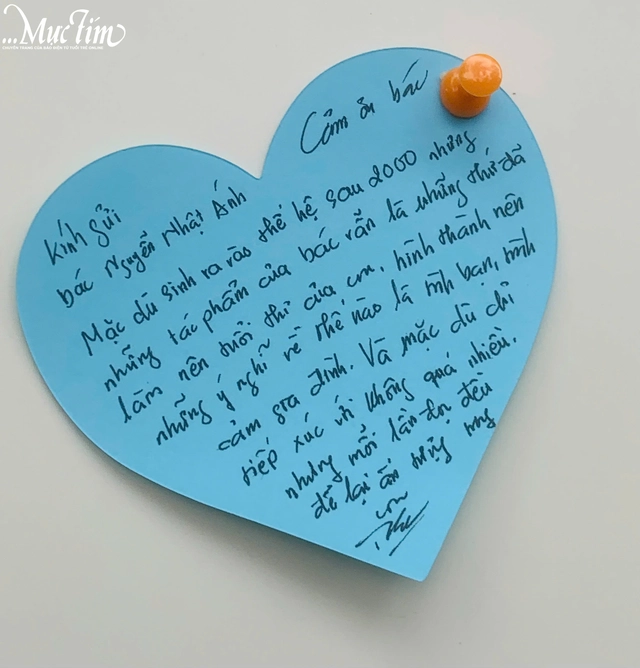 ...Mực Tím
CHUYÊN TRANG CỦA BÁO ĐIỆN TỬ TUỔI TRẺ ONLINE
Kính gửi
bác Nguyễn Nhật Ánh
Cảm ơn bác
Mặc dù sinh ra vào thế hệ sau 2000 nhưng
những tác phẩm của bác vẫn là những thứ đã
làm nên tuổi thơ của con, hình thành nên
những ý nghĩ về thế nào là tình bạn, tình
cảm gia đình. Và mặc dù chỉ
tiếp xúc với không quá nhiều,
nhưng mỗi lần đọc đều
để lại ấn tượng
con